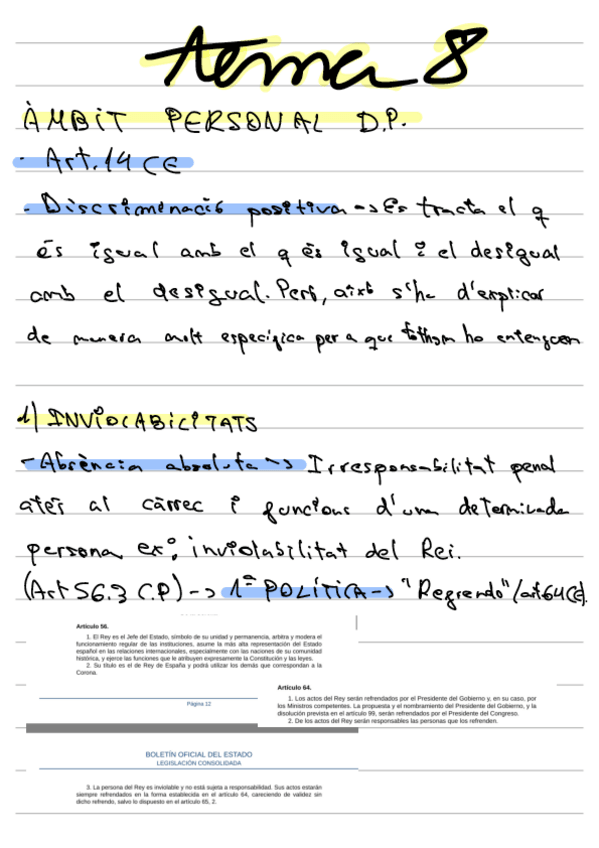 tema 8
ÀMBIT PERSONAL D.P.
- Art.14 CE
- Discriminació positiva -> Es tracta el q
és igual amb el q és igual i el desigual
amb el desigual. Però, això s'ha d'explicar
de manera molt específica per a que tothom ho entenguen
1) INVIOCABILITATS
- Absència absoluta -> Irresponsabilitat penal
atès al càrrec i funcions d'una determinada
persona, ex: inviolabilitat del Rei.
(Art 56.3 C.P) -> 1ª POLÍTICA -> "Regrendo"/art64CE).
Artículo 56.
1. El Rey es el Jefe del Estado, símbolo de su unidad y permanencia, arbitra y modera el
funcionamiento regular de las instituciones, asume la más alta representación del Estado
español en las relaciones internacionales, especialmente con las naciones de su comunidad
histórica, y ejerce las funciones que le atribuyen expresamente la Constitución y las leyes.
2. Su título es el de Rey de España y podrá utilizar los demás que correspondan a la
Corona.
Página 12
Artículo 64.
1. Los actos del Rey serán refrendados por el Presidente del Gobierno y, en su caso, por
los Ministros competentes. La propuesta y el nombramiento del Presidente del Gobierno, y la
disolución prevista en el artículo 99, serán refrendados por el Presidente del Congreso.
2. De los actos del Rey serán responsables las personas que los refrenden.
BOLETÍN OFICIAL DEL ESTADO
LEGISLACIÓN CONSOLIDADA
3. La persona del Rey es inviolable y no está sujeta a responsabilidad. Sus actos estarán
siempre refrendados en la forma establecida en el artículo 64, careciendo de validez sin
dicho refrendo, salvo lo dispuesto en el artículo 65, 2.